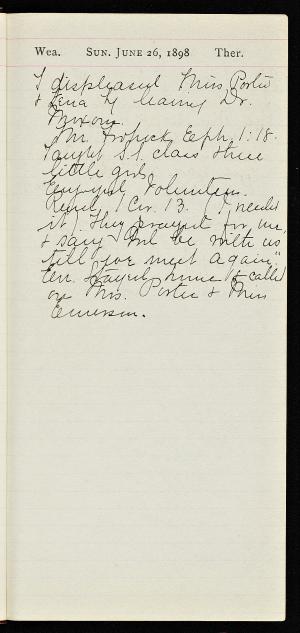 Wea. SUN. JUNE 26, 1898 Ther.
I displeased Miss Porter
& Lena by leaving Dr.
Mr. Eph. 1:18.
Taught S.S. class three
little girls
Enjoyed Volunteers.
Read, 1 Cor. 13. (I needed
it). They prayed for me,
& sang "God be with us
till we meet again."
Eve. stayed home & called
on Mrs. Porter & Miss
Emerson.